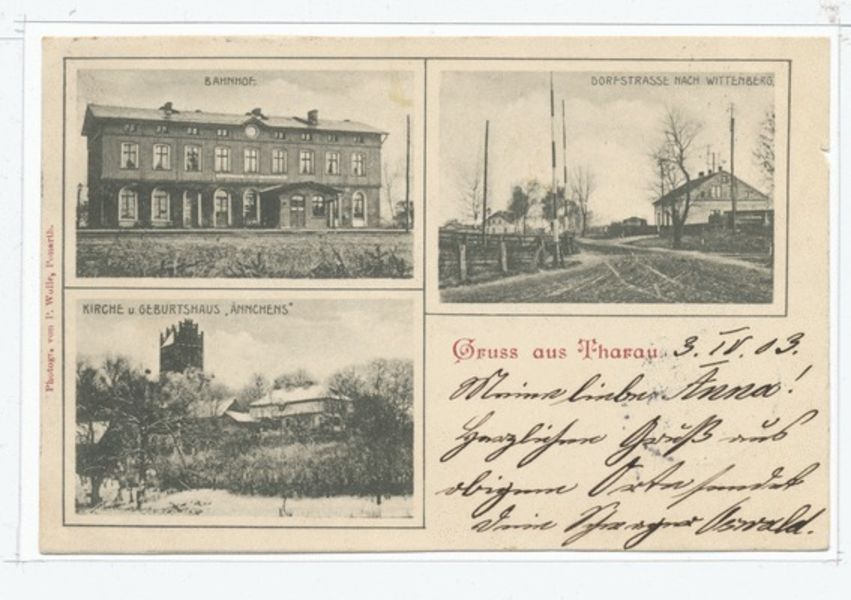 BAHNHOF.
DORFSTRASSE NACH WITTENBERG.
KIRCHE u. GEBURTSHAUS „ÄNNCHENS"
Photogr. von P. Wolle, Ponarth.
Gruss aus Tharau. 3. IV. 03.
Meine liebe Anna!
Herzlichen Gruß aus
obigem Orte sendet
Dein Schwager Oswald.